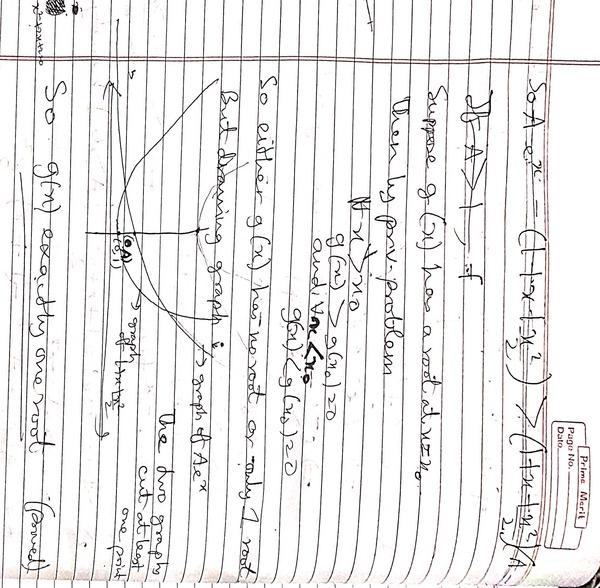 Prime Merit
Page No.
Date
So A e^x - (1+x+x²/2) > (1+x+x²/2)(A-
If A > 1, f
Suppose g(x) has a root at x=x₀
Then by prv. problem
∀ x > x₀
g(x) > g(x₀)=0
and ∀ x < x₀
g(x) < g(x₀)=0
So either g(x) has no root or only 1 root
But drawing graph
graph of Ae^x
The two graphs
cut at least
one point
(0,A)
(0,1)
graph
of 1+x+x²/2
So g(x) exactly one root (proved)